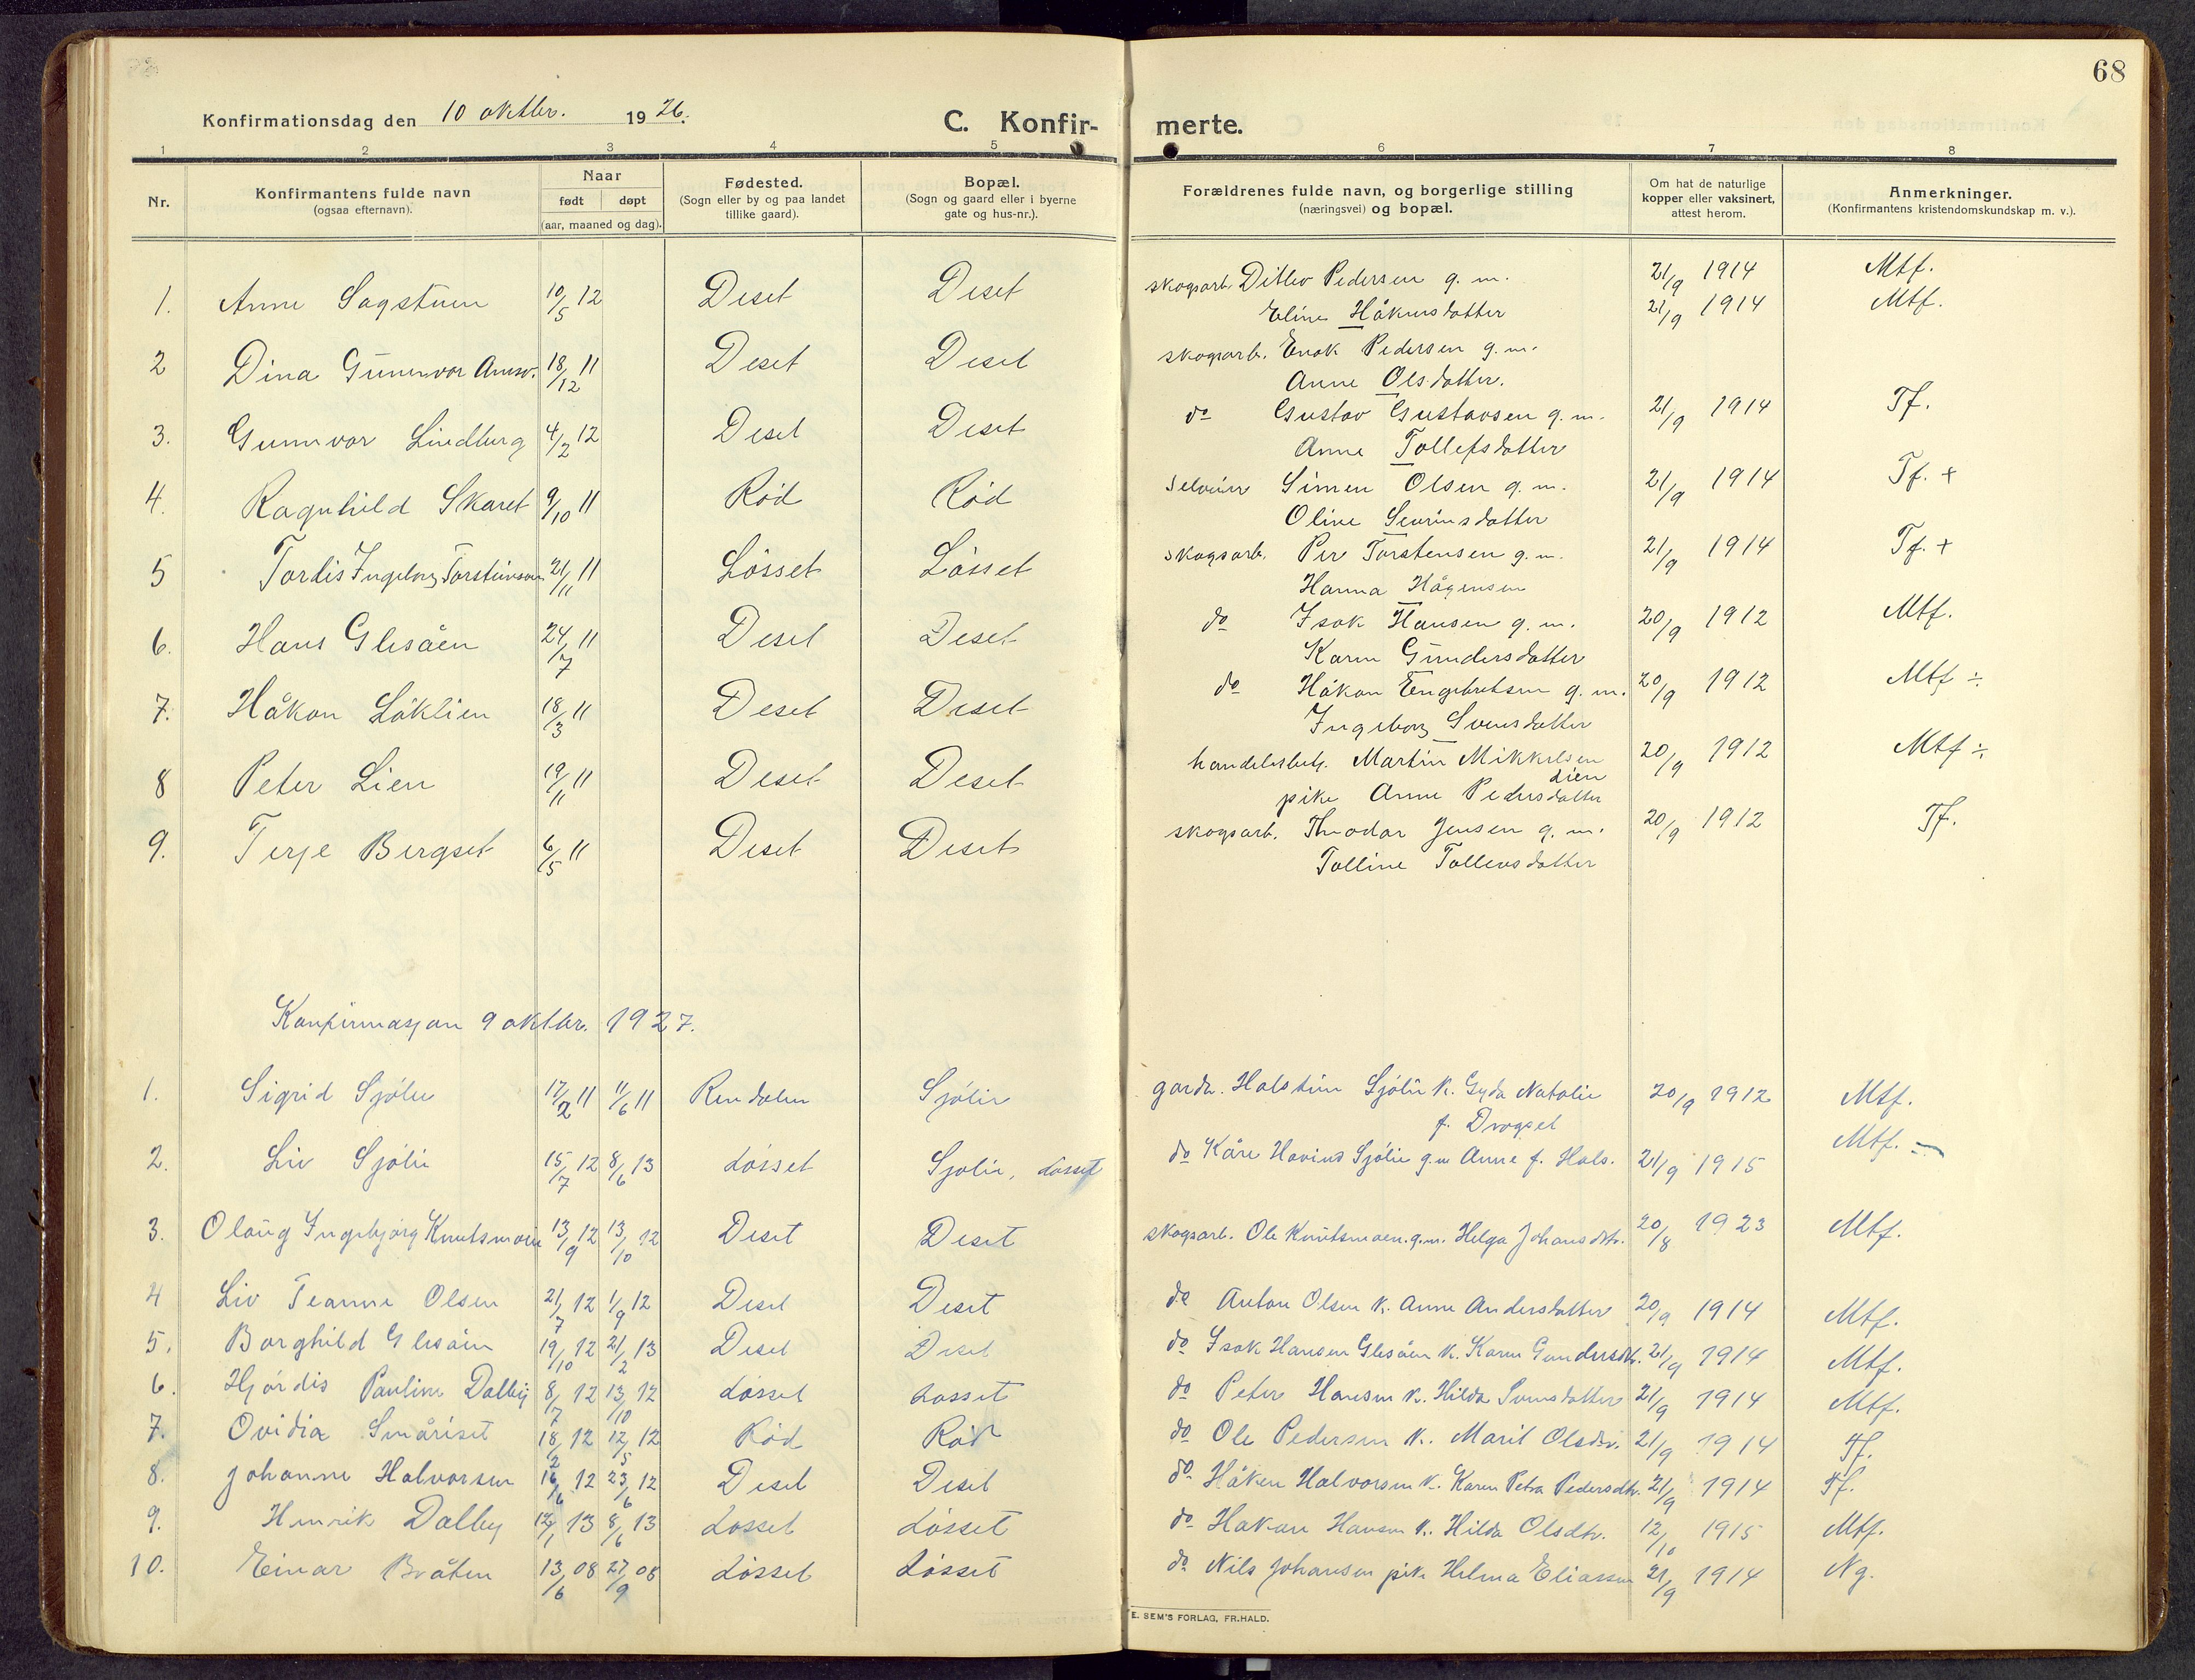 68
Konfirmationsdag den 10 oktbr. 1926.
C. Konfir- merte.
1 2 3 4 5 6 7 8
Nr.
Konfirmantens fulde navn
(ogsaa efternavn).
Naar
født døpt
(aar, maaned og dag).
Fødested.
(Sogn eller by og paa landet
tillike gaard).
Bopæl.
(Sogn og gaard eller i byerne
gate og hus-nr.).
Forældrenes fulde navn, og borgerlige stilling
(næringsvei) og bopæl.
Om hat de naturlige
kopper eller vaksinert,
attest herom.
Anmerkninger.
(Konfirmantens kristendomskundskap m. v.).
1. Anne Sagstuen 10/5 12 Deset Deset skogsarb. Ditlev Pedersen g. m. 21/9 1914 Mtf.
Eline Håkensdatter 21/9 1914 Mtf.
2 Dina Gunnvor Amso. 18/12 11 Deset Deset skogsarb. Enok Pedersen g. m.
Anne Olsdatter.
3. Gunnvor Lindberg 4/2 12 Deset Deset do Gustav Gustavsen g. m. 21/9 1914 Tf.
Anne Tollefsdatter
4. Ragnhild Skaret 9/10 11 Rød Rød selveier Simen Olsen g. m. 21/9 1914 Tf. +
Oline Sevrinsdatter
5 Tordis Ingeborg Torsteinson 21/11 11 Løsset Løsset skogsarb. Per Torstensen g. m. 21/9 1914 Tf. +
Hanna Hågensen
6. Hans Glesåen 24/7 11 Deset Deset do Isak Hansen g. m. 20/9 1912 Mtf.
Karen Gundersdatter
7. Håkon Løklien 18/3 11 Deset Deset do Håkon Engebretsen g. m. 20/9 1912 Mtf ÷
Ingeborg Svensdatter
8 Peter Lien 19/11 11 Deset Deset handelsbet. Martin Mikkelsen 20/9 1912 Mtf ÷
Lien
pike Anne Pedersdatter
9. Terje Bergset 6/5 11 Deset Deset skogsarb. Theodor Jensen g. m. 20/9 1912 Tf.
Tolline Tollevsdatter
Konfirmasjon 9 oktbr. 1927.
1. Sigrid Sjølie 17/2 11 11/6 11 Rendalen Sjølie gardbr. Halstein Sjølie k. Gyda Natalie 20/9 1912 Mtf.
f. Drogset
2. Liv Sjølie 15/7 12 8/6 13 Løsset Sjølie, Løsset do Kåre Hovind Sjølie g.m Anne f. Hals. 21/9 1915 Mtf. -
3. Olaug Ingebjørg Knutsmoen 13/9 12 13/10 12 Deset Deset skogsarb. Ole Knutsmoen g.m. Helga Johansdtr. 20/8 1923 Mtf.
4 Liv Jeanne Olsen 21/7 12 1/9 12 Deset Deset do Anton Olsen k. Anne Andersdatter 20/9 1914 Mtf.
5. Borghild Glesåen 19/10 12 21/2 13 Deset Deset do Isak Hansen Glesåen k. Karen Gundersdtr. 21/9 1914 Mtf.
6. Hjørdis Pauline Dalby 8/7 12 13/10 12 Løsset Løsset do Peter Hansen k. Hilda Svensdatter 21/9 1914 Mtf.
7. Ovidia Småriset 18/2 12 12/5 12 Rød Rød do Ole Pedersen k. Marit Olsdtr. 21/9 1914 Tf.
8. Johanne Halvorsen 16/6 12 23/6 12 Deset Deset do Håken Halvorsen k. Karen Petra Pedersdtr. 21/9 1914 Tf.
9. Henrik Dalby 12/1 13 8/6 13 Løsset Løsset do Hakan Hansen k. Hilda Olsdtr. 12/10 1915 Mtf.
10. Einar Bråten 13/6 08 27/9 08 Løsset Løsset do Nils Johansen pike Helma Eliassen 21/9 1914 Ng.
E. SEM'S FORLAG, FR.HALD.